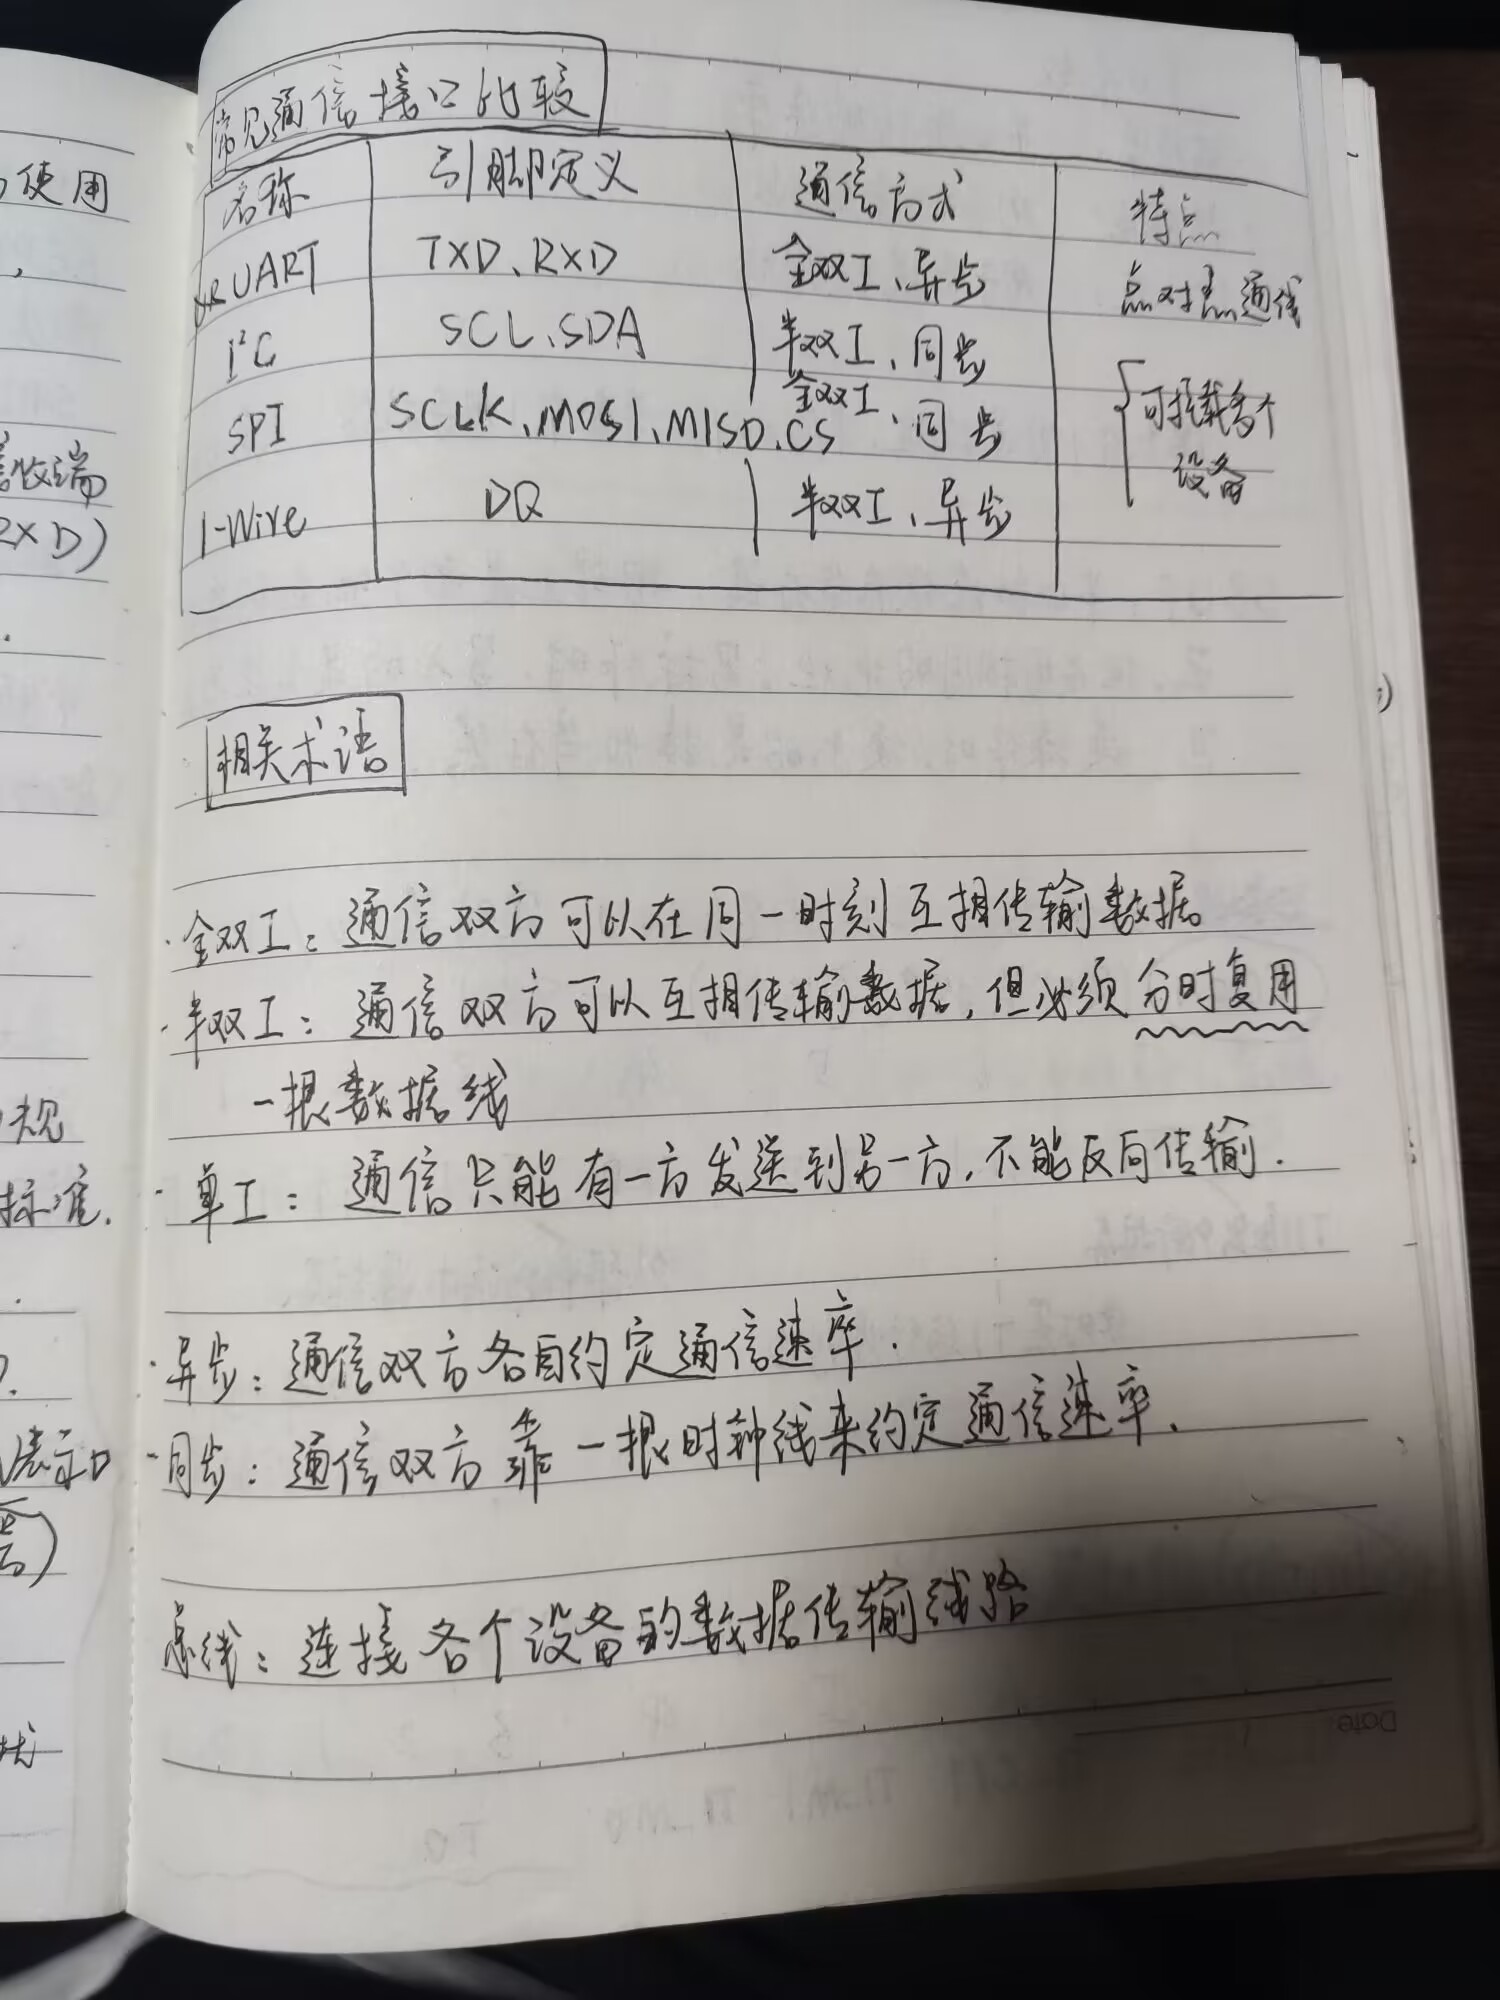 常见通信接口比较
名称 引脚定义 通信方式 特点
UART TXD、RXD 全双工、异步 点对点通线
I²C SCL、SDA 半双工、同步
SPI SCLK、MOSI、MISO、CS 全双工、同步 可挂载多个
设备
1-Wire DQ 半双工、异步
相关术语
·全双工：通信双方可以在同一时刻互相传输数据
·半双工：通信双方可以互相传输数据，但必须分时复用
一根数据线
·单工：通信只能有一方发送到另一方，不能反向传输.
·异步：通信双方各自约定通信速率.
·同步：通信双方靠一根时钟线来约定通信速率.
总线：连接各个设备的数据传输线路
Date
使用
收端
RXD)
规
标准.